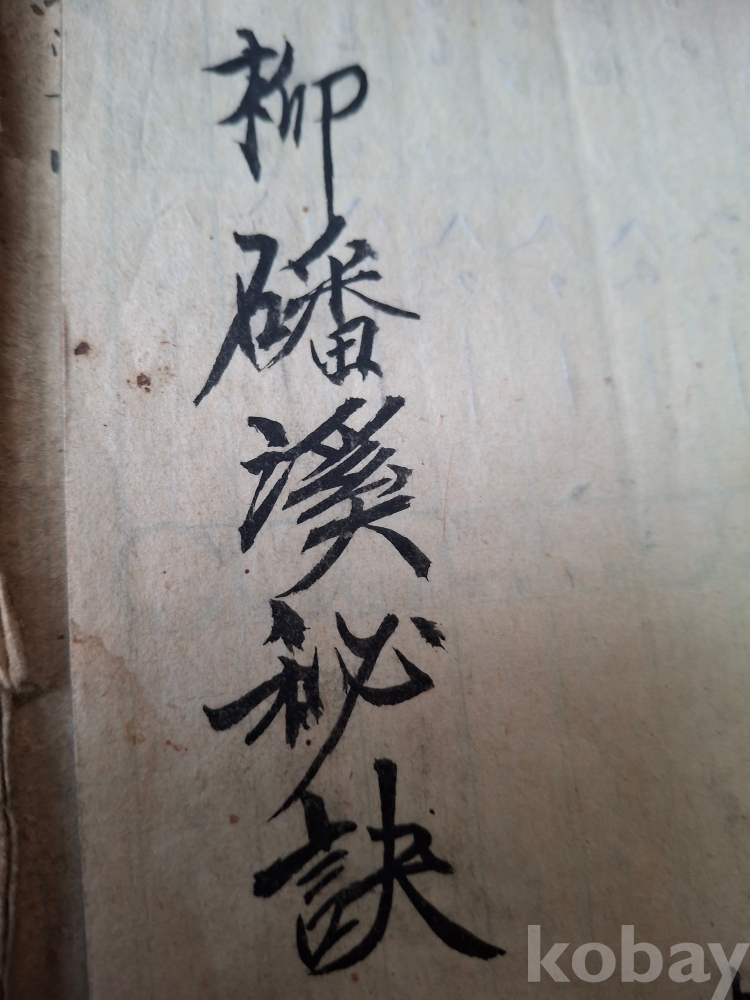 柳磻溪秘訣
kobay